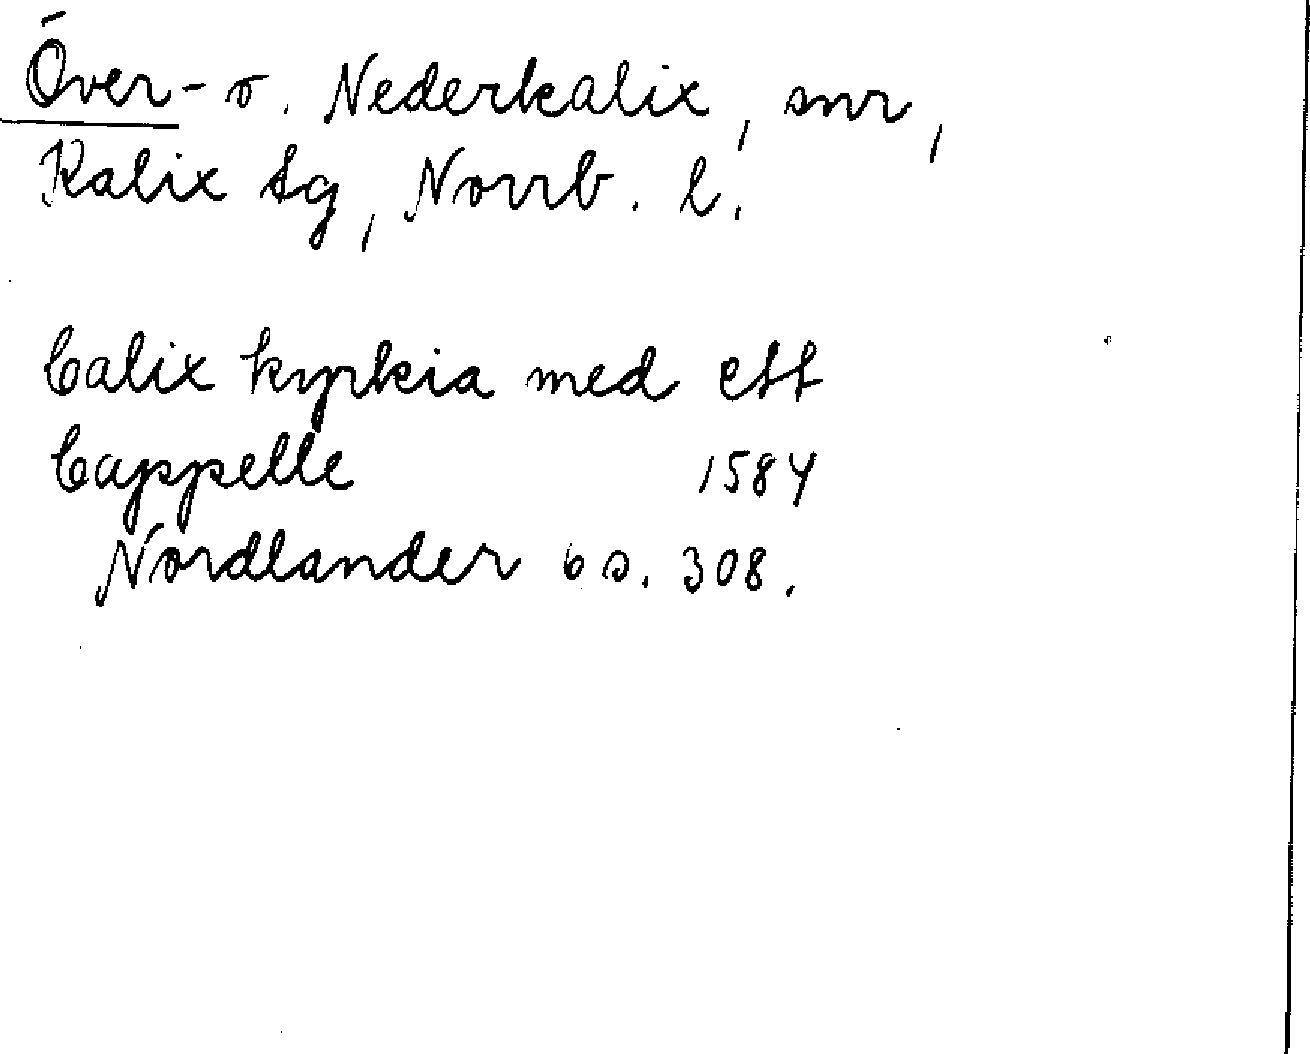 Över- o. Nederkalix, snr,
Kalix tg, Norrb. l.
Calix kyrkia med ett
Cappelle 1584
Nordlander 6 s. 308.